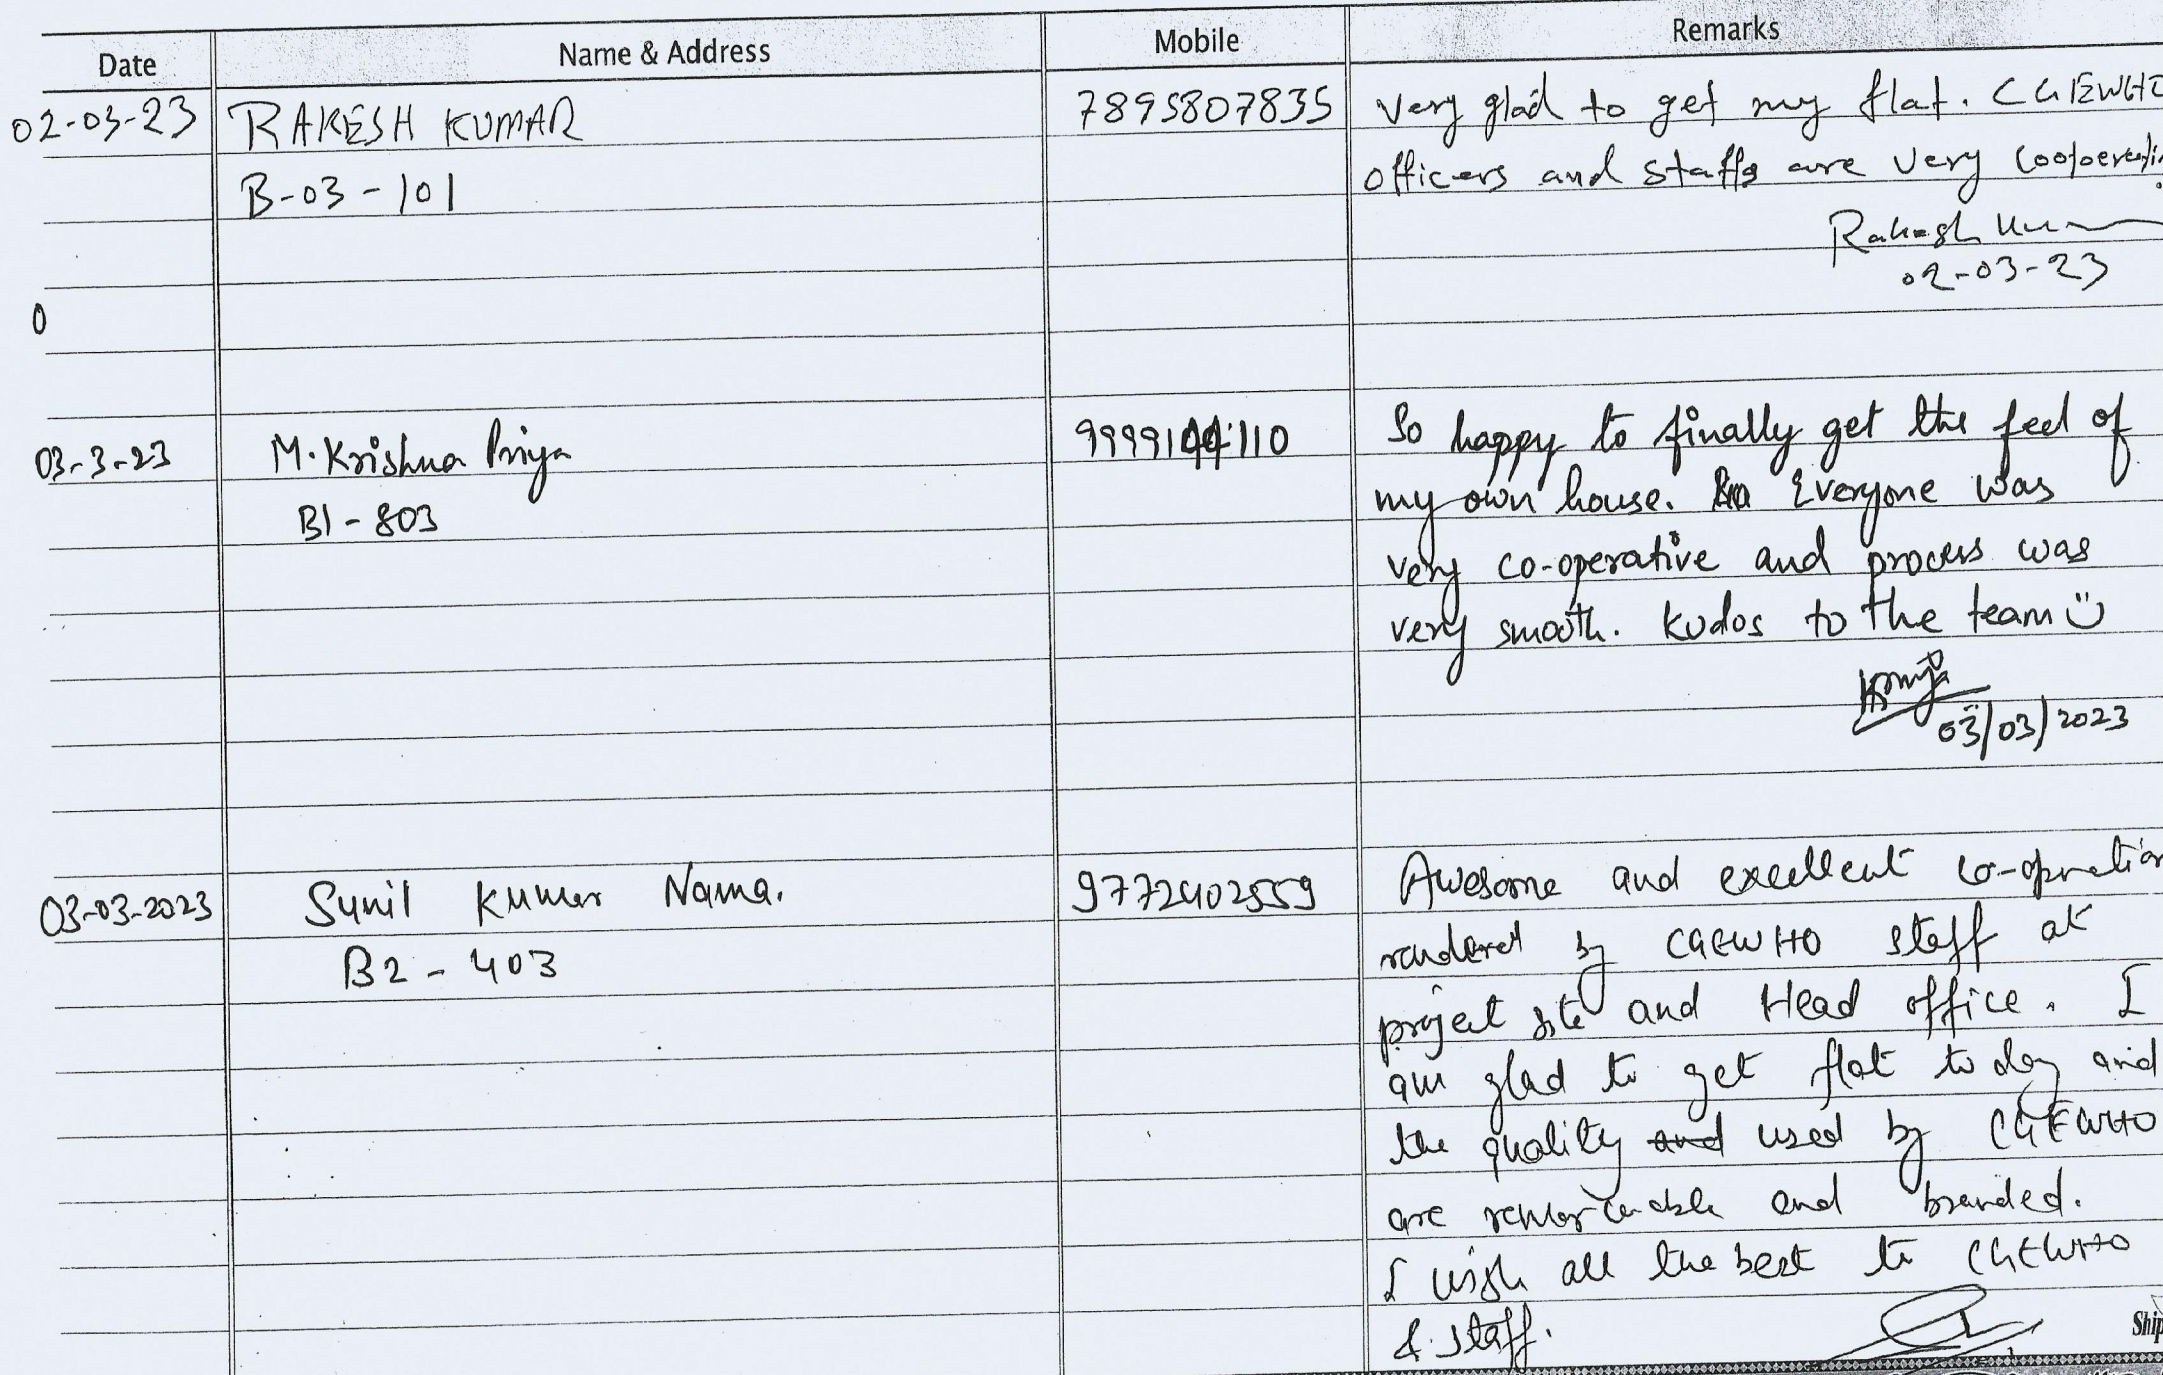 Date Name & Address Mobile Remarks
02-03-23 RAKESH KUMAR 7895807835 Very glad to get my flat. CGEWHO
B-03-101 officers and staffs are very
Rakesh
02-03-23
0
03-3-23 M. Krishna Priya 9999144110 So happy to finally get the feel of
B1-803 my own house. Everyone was
very co-operative and process was
very smooth. Kudos to the team
03/03/2023
03-03-2023 Sunil Kumar Nama. 9772402559 Awesome and excellent co-opration
B2-403 rendered by CGEWHO staff at
project site and Head office. I
am glad to get flat today and
the quality and used by CGEWHO
are remarkable and branded.
I wish all the best to CGEWHO
& staff.
Ship